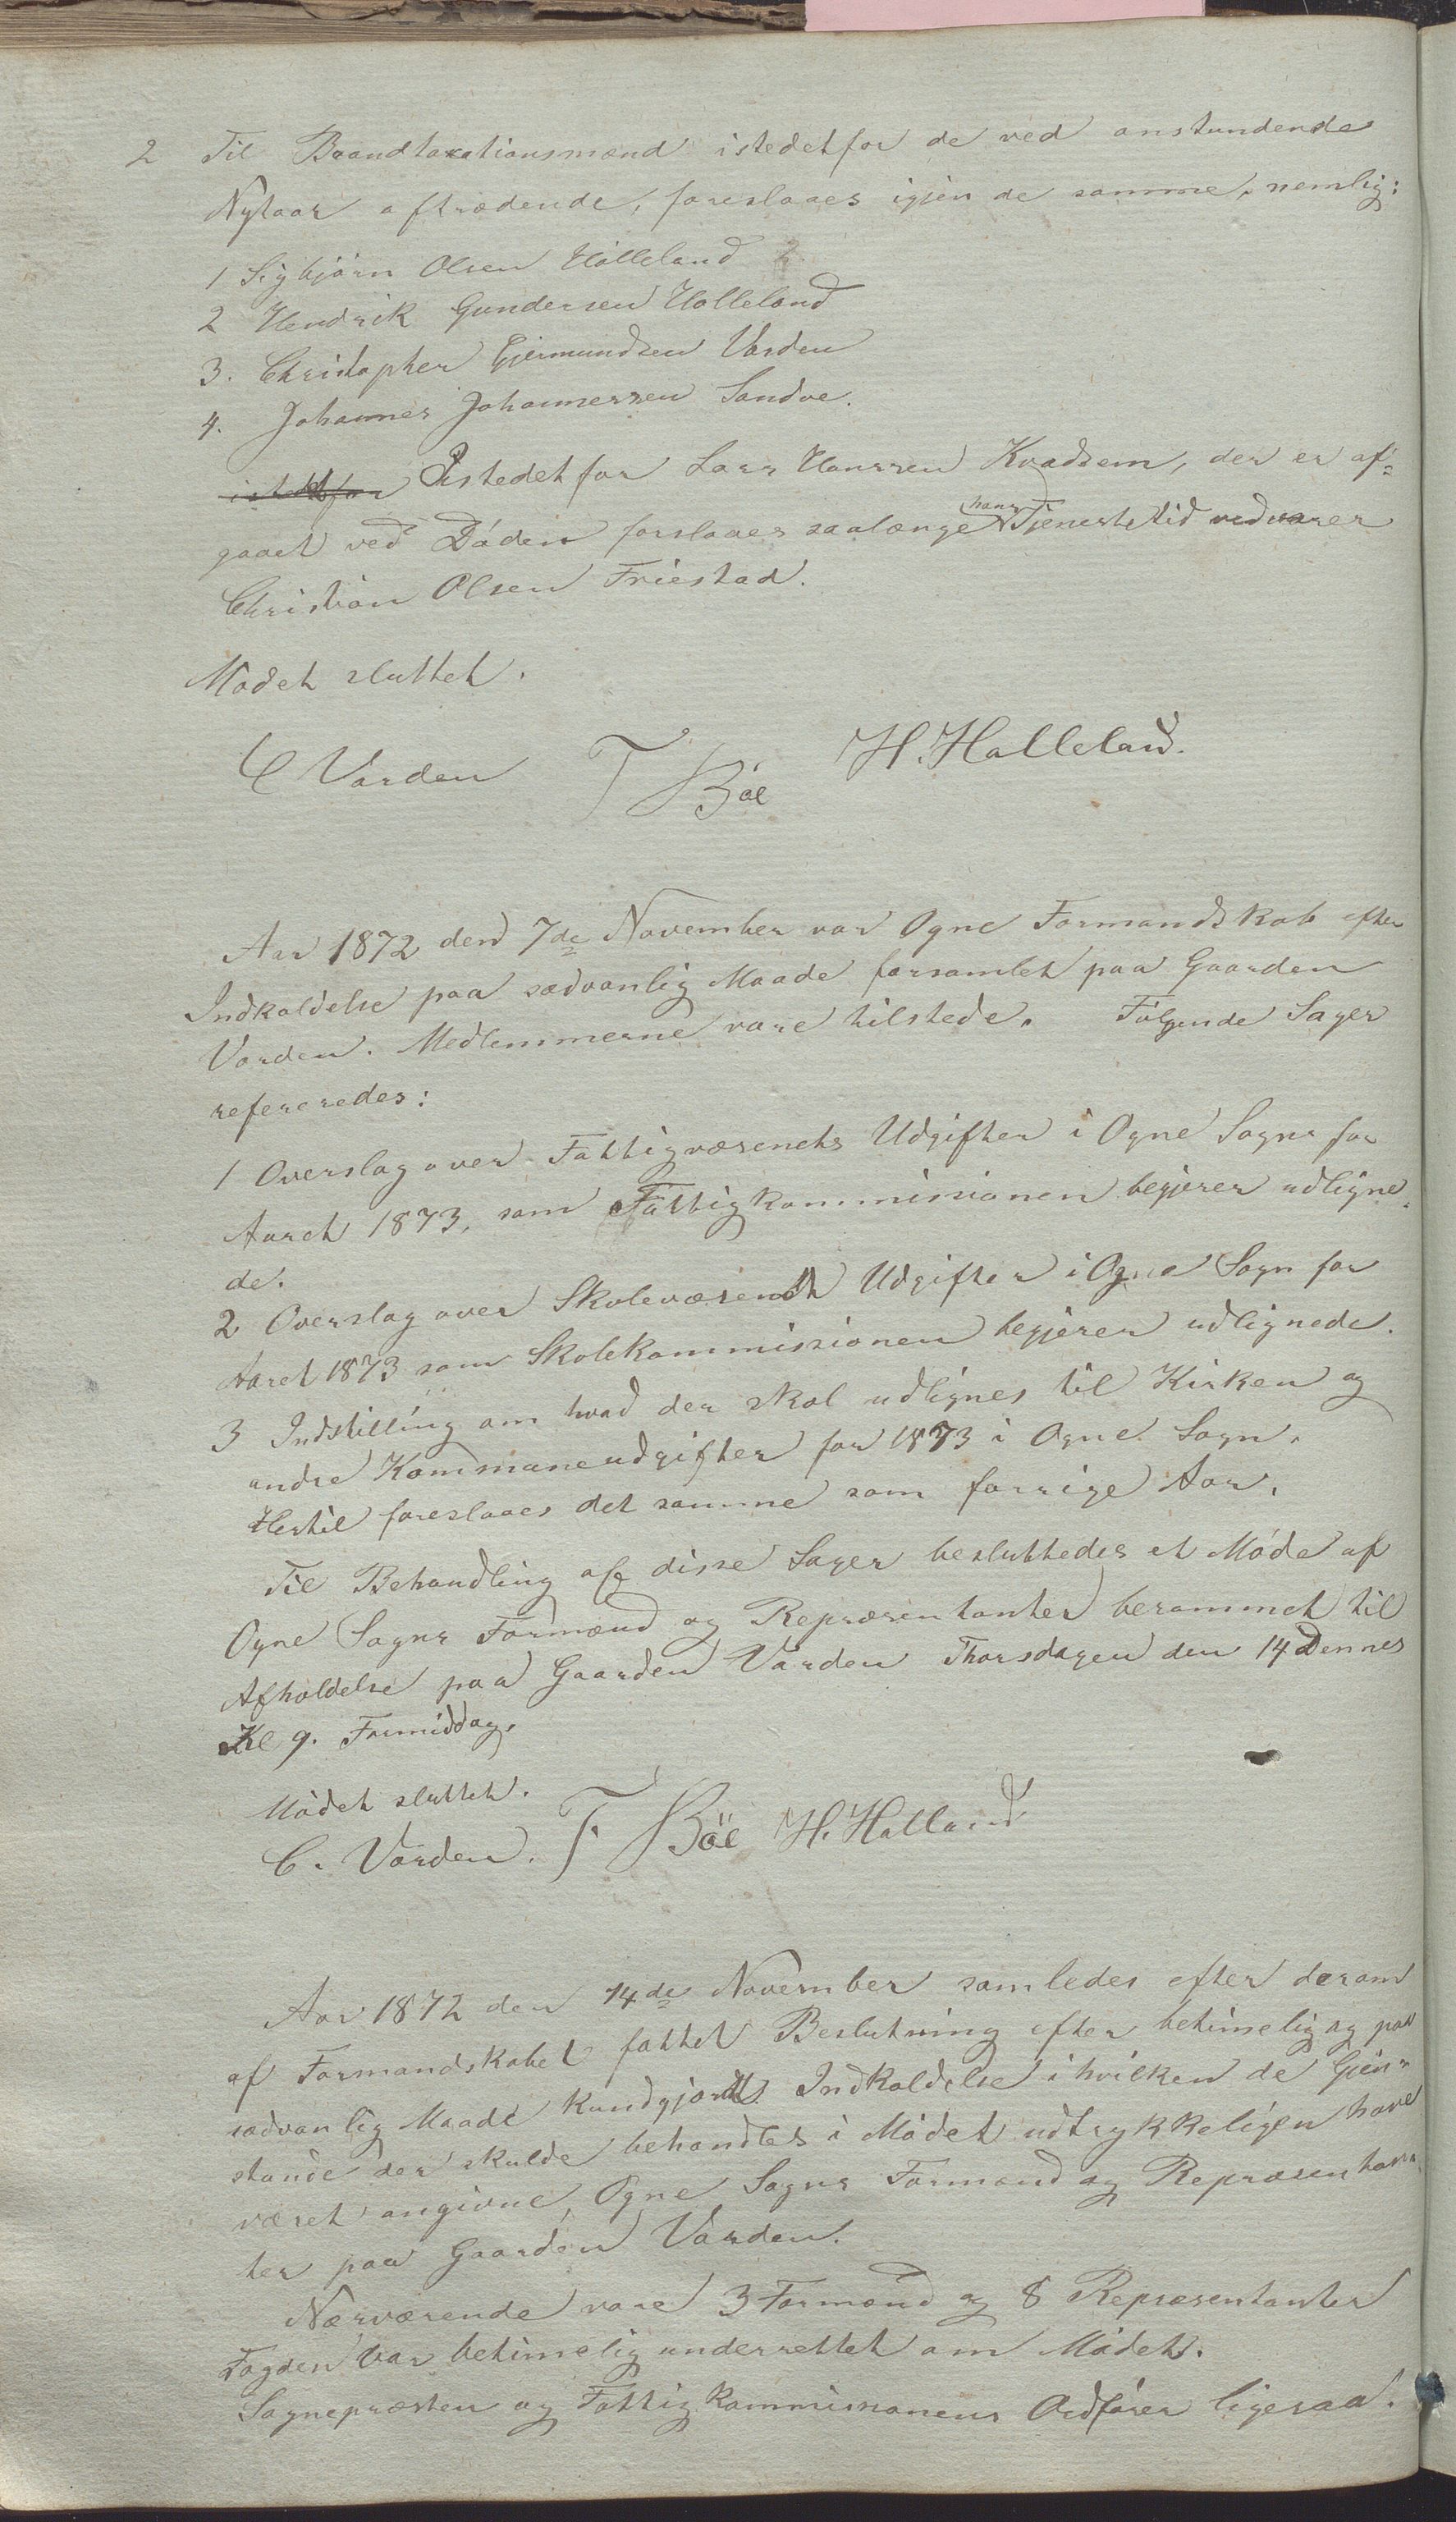 2 Til Brandtaxationsmænd istedetfor de ved anstundende
Nytaar aftrædende, foreslaaes igjen de samme, nemlig:
1 Sigbjørn Olsen Hølleland
2 Hendrik Gundersen Holleland
3. Christopher Gjermundsen Varden
4. Johannes Johannessen Sandve.
istedetfor Istedetfor Lars Hanssen Kvadsem, der er af=
gaaet ved Døden forslaaes saalænge hans Tjenestetid vedvarer
Christian Olsen Friestad.
Mødet sluttet.
C Varden T Bøe H. Halleland.
Aar 1872 den 7de November var Ogne Formandskab efter
Indkaldelse paa sædvanlig Maade forsamlet paa Gaarden
Varden. Medlemmerne vare tilstede. Følgende Sager
refereredes:
1 Overslag over Fattigvæsenets Udgifter i Ogne Sogns for
Aaret 1873, som Fattigkommissionen begjerer udligne-
de.
2 Overslag over Skolevæsenets Udgifter i Ogne Sogn for
Aaret 1873 som Skolekommissionen begjerer udlignede.
3 Indstilling om hvad der skal udlignes til Kirken og
andre Kommuneudgifter for 1873 i Ogne Sogn.
Hertil foreslaaes det samme som forrige Aar.
Til Behandling af disse Sager besluttedes et Møde af
Ogne Sogns Formænd og Repræsentanter berammet til
Afholdelse paa Gaarden Varden Thorsdagen den 14 Dennes
Kl 9. Formiddag.
Mødet sluttet.
C. Varden. T. Böe H. Halland
Aar 1872 den 14de November samledes efter derom
af Formandskabet fattet Beslutning efter betimelig og paa
sædvanlig Maade kundgjordt Indkaldelse i hvilken de Gjen-
stande der skulde behandles i Mødet udtrykkeligen have
været angivne, Ogne Sogns Formænd og Repræsentan-
ter paa Gaarden Varden.
Nærværende vare 3 Formænd og 8 Repræsentanter
Fogden var betimelig underrettet om Mødet.
Sognepræsten og Fattigkommissionens Ordfører ligesaa.